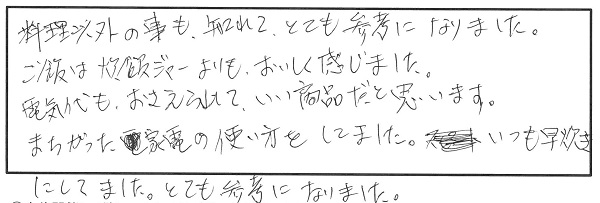 料理以外の事も、知れて、とても参考になりました。
ご飯は炊飯ジャーよりも、おいしく感じました。
電気代も、おさえられて、いい商品だと思います。
まちがった家電の使い方をしてました。いつも早炊き
にしてました。とても参考になりました。